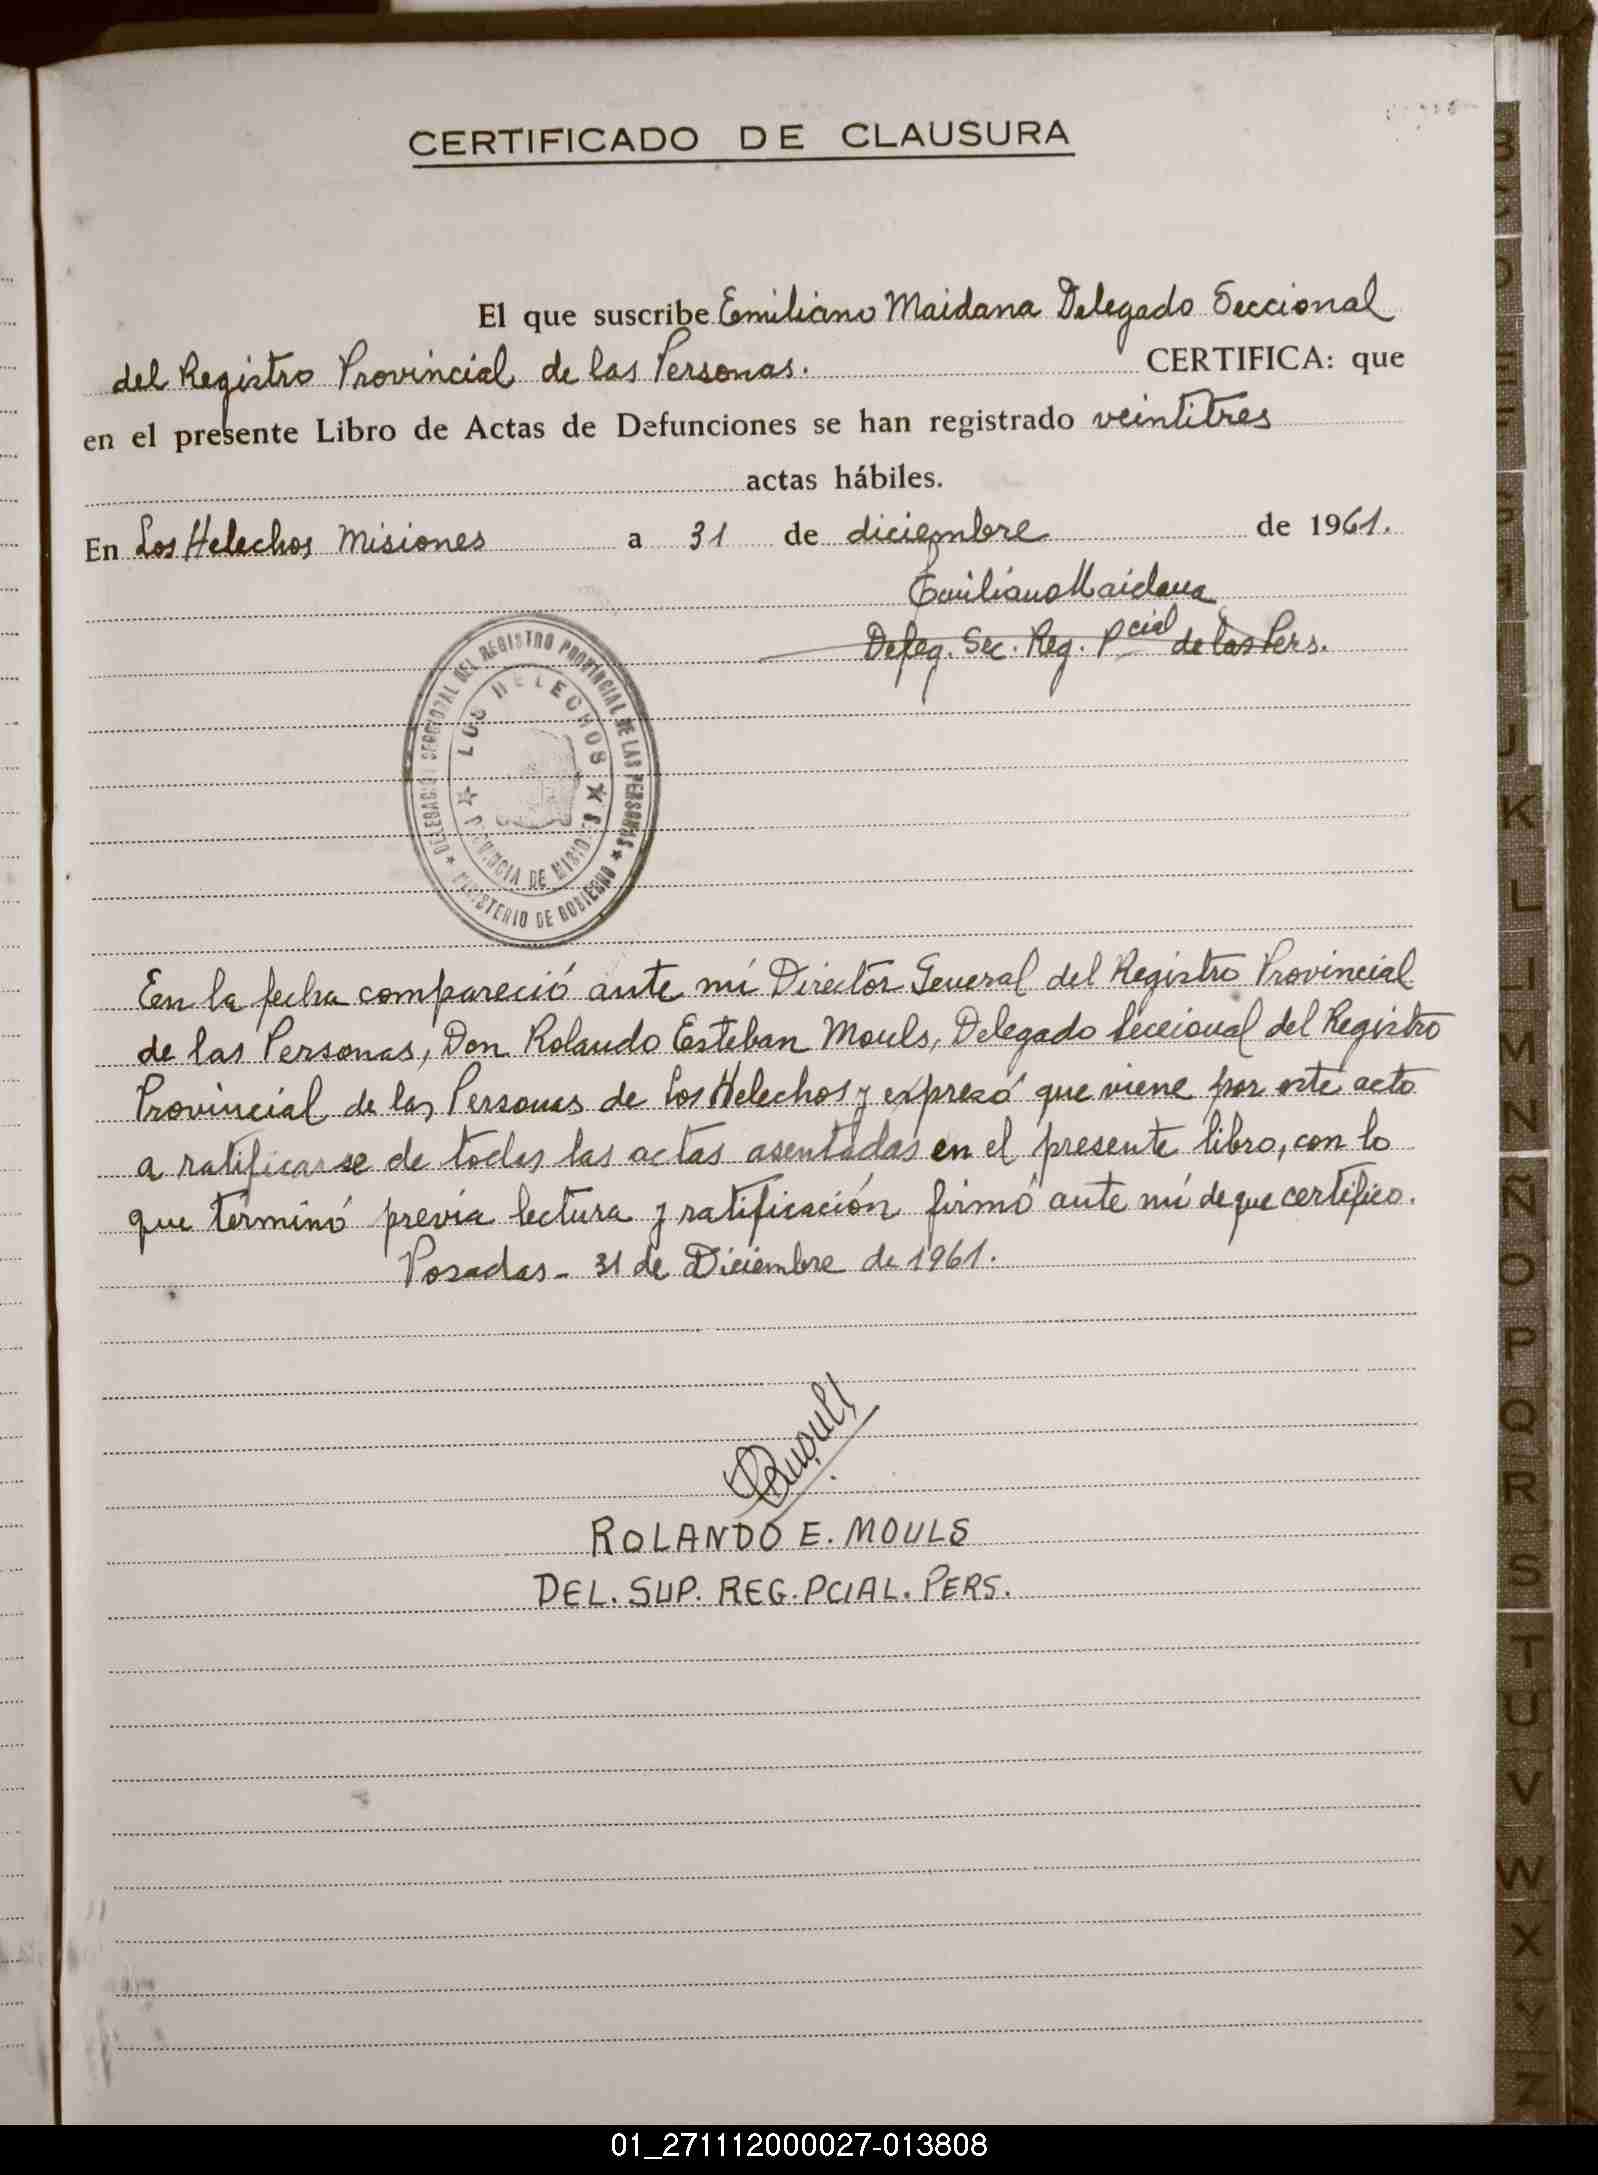 CERTIFICADO DE CLAUSURA
El que suscribe Emiliano Maidana Delegado Seccional
del Registro Provincial de las Personas. CERTIFICA: que
en el presente Libro de Actas de Defunciones se han registrado veintitres
actas hábiles.
En Los Helechos Misiones a 31 de diciembre de 1961.
Emiliano Maidana
Deleg. Sec. Reg. Pcial de las Pers.
DELEGACION SECCIONAL DEL REGISTRO PROVINCIAL DE LAS PERSONAS
LOS HELECHOS
PROVINCIA DE MISIONES
MINISTERIO DE GOBIERNO
En la fecha compareció ante mí Director General del Registro Provincial
de las Personas, Don Rolando Esteban Mouls, Delegado Seccional del Registro
Provincial de las Personas de Los Helechos y expresó que viene por este acto
a ratificarse de todas las actas asentadas en el presente libro, con lo
que terminó previa lectura y ratificación firmó ante mí de que certifico.
Posadas - 31 de Diciembre de 1961.
ROLANDO E. MOULS
DEL. SUP. REG. PCIAL. PERS.
B
C
D
E
F
G
H
I
J
K
L
Ll
M
N
Ñ
O
P
Q
R
S
T
U
V
W
X
Y
Z
01_271112000027-013808